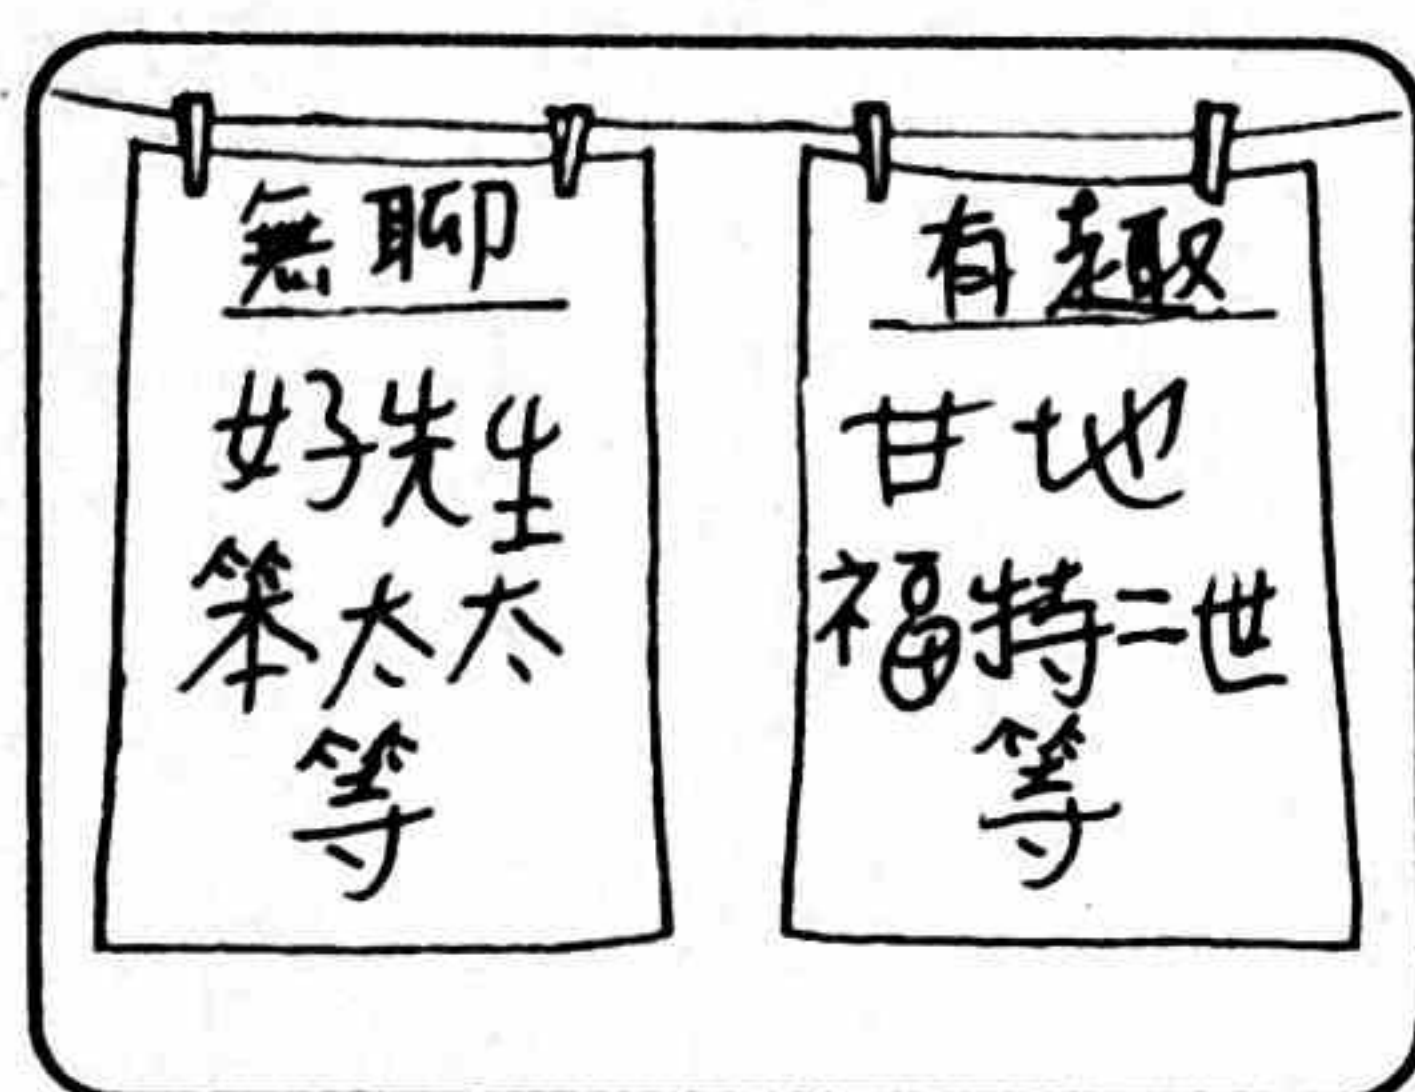 無聊
好先生
笨太太
等
有趣
甘地
福特二世
等